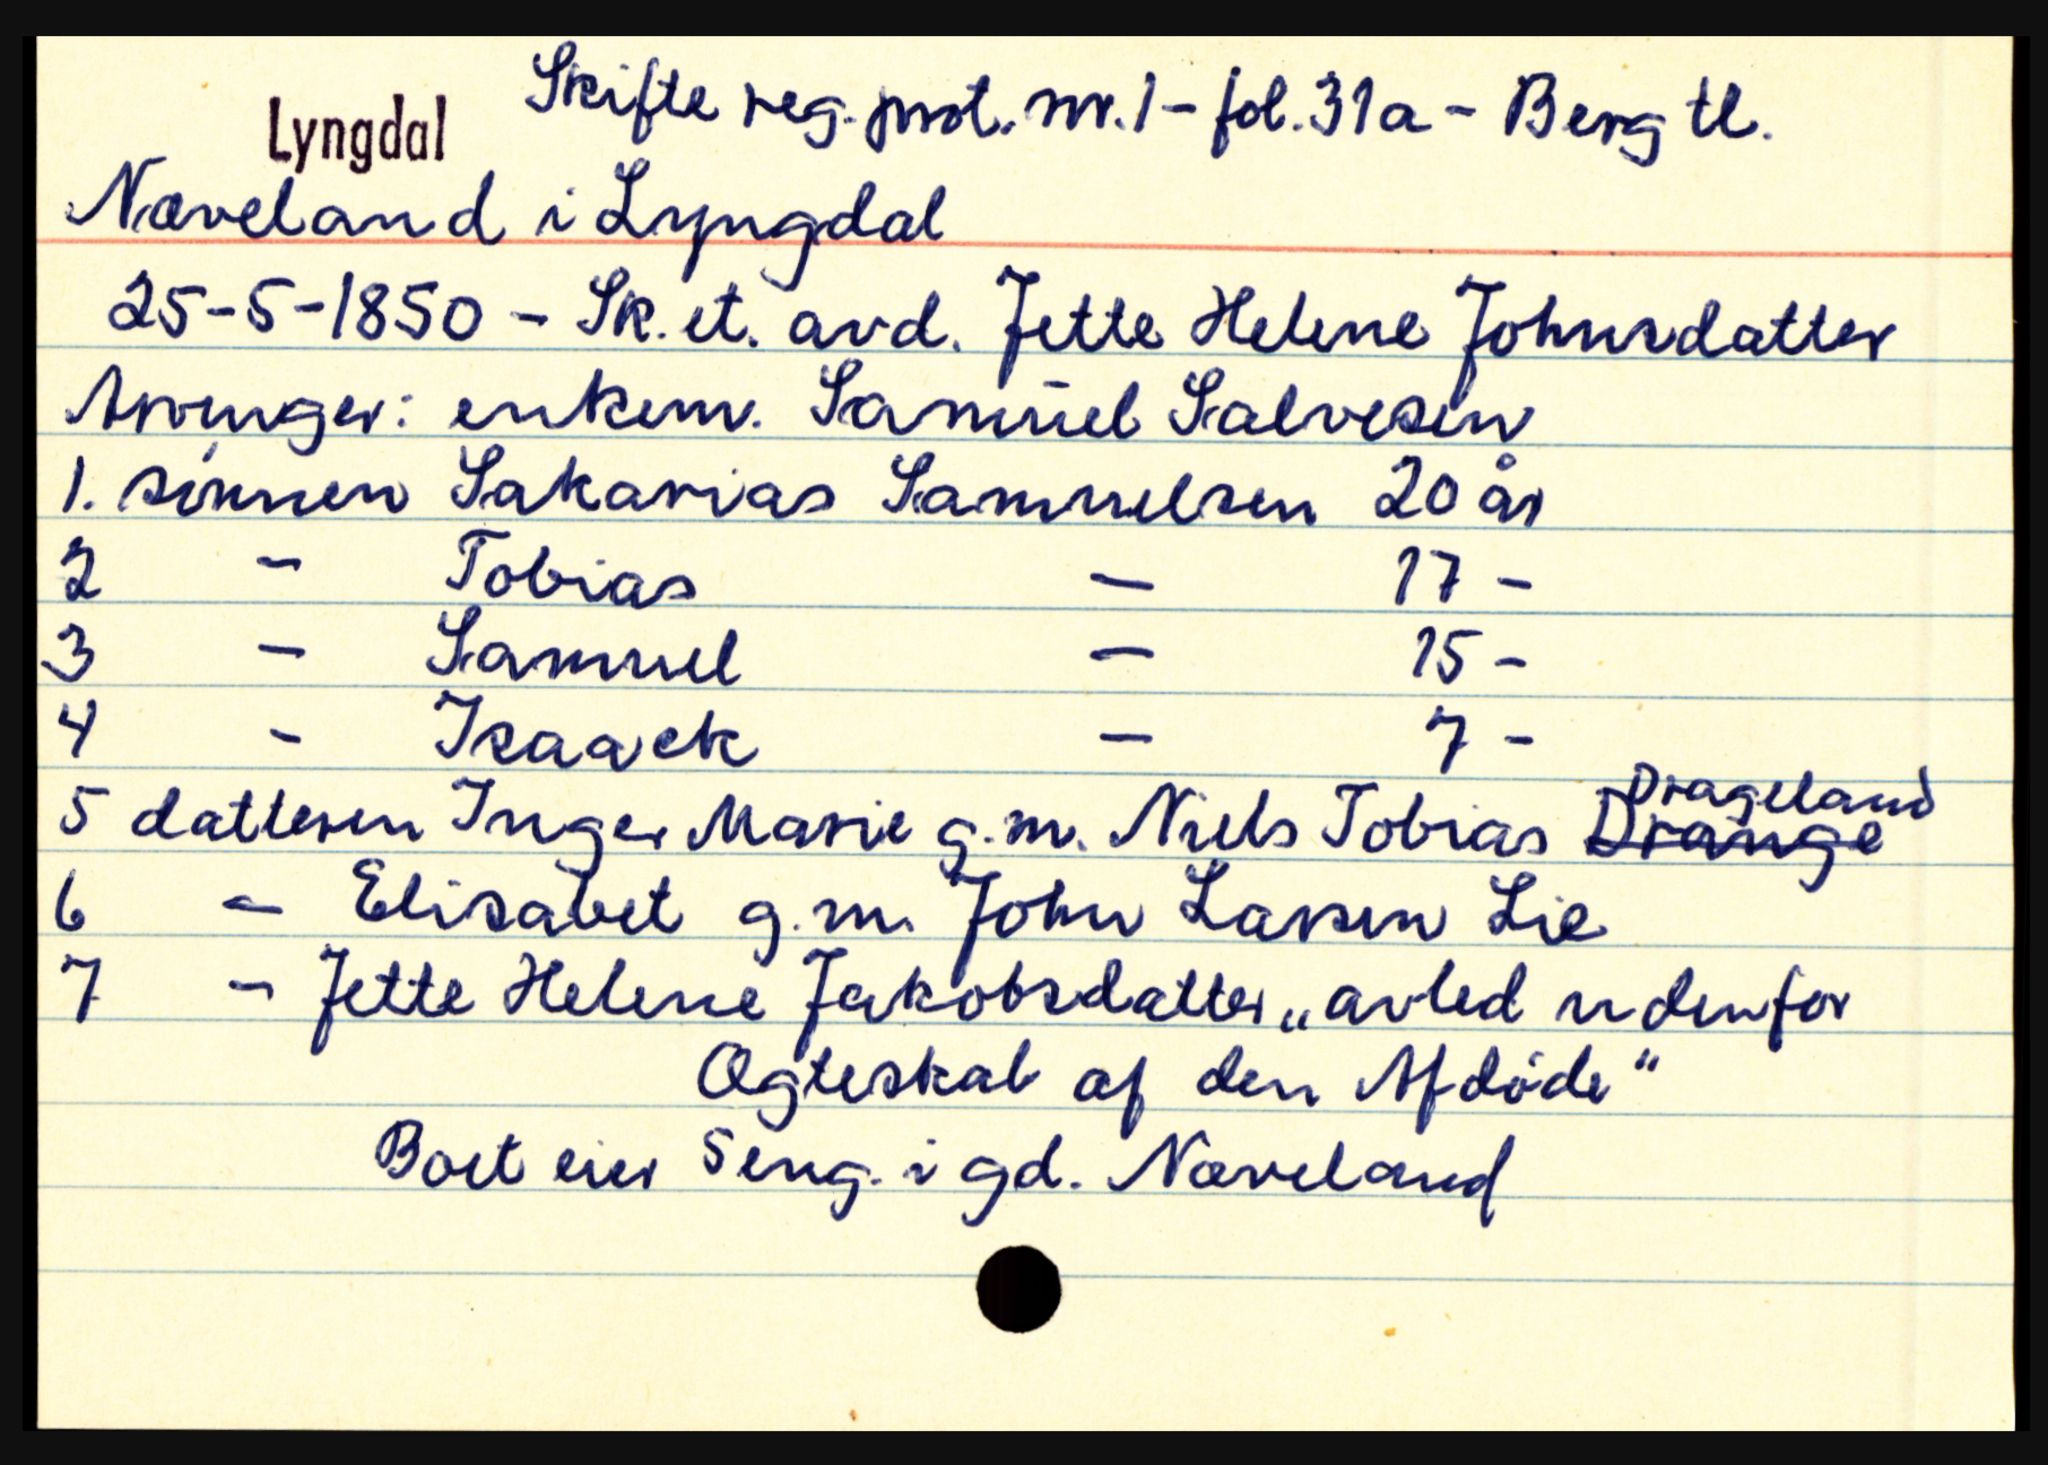 Skifte reg. prot. nr. 1 - fol. 31a - Berg tl.
Lyngdal
Næveland i Lyngdal
25-5-1850 - Sk. et. avd. Jette Helene Johnsdatter
Arvinger: enkem. Samuel Salvesen
1. sønnen Sakarias Samuelsen 20 år
2 - Tobias - 17 -
3 - Samuel - 15 -
4 - Isaack - 7 -
Drageland
5 datteren Inger Marie g.m. Niels Tobias Drange
6 - Elisabet g.m. John Larsen Lie
7 - Jette Helene Jakobsdatter „avled udenfor
Ægteskab af den Afdøde"
Boet eier 5 eng. i gd. Næveland